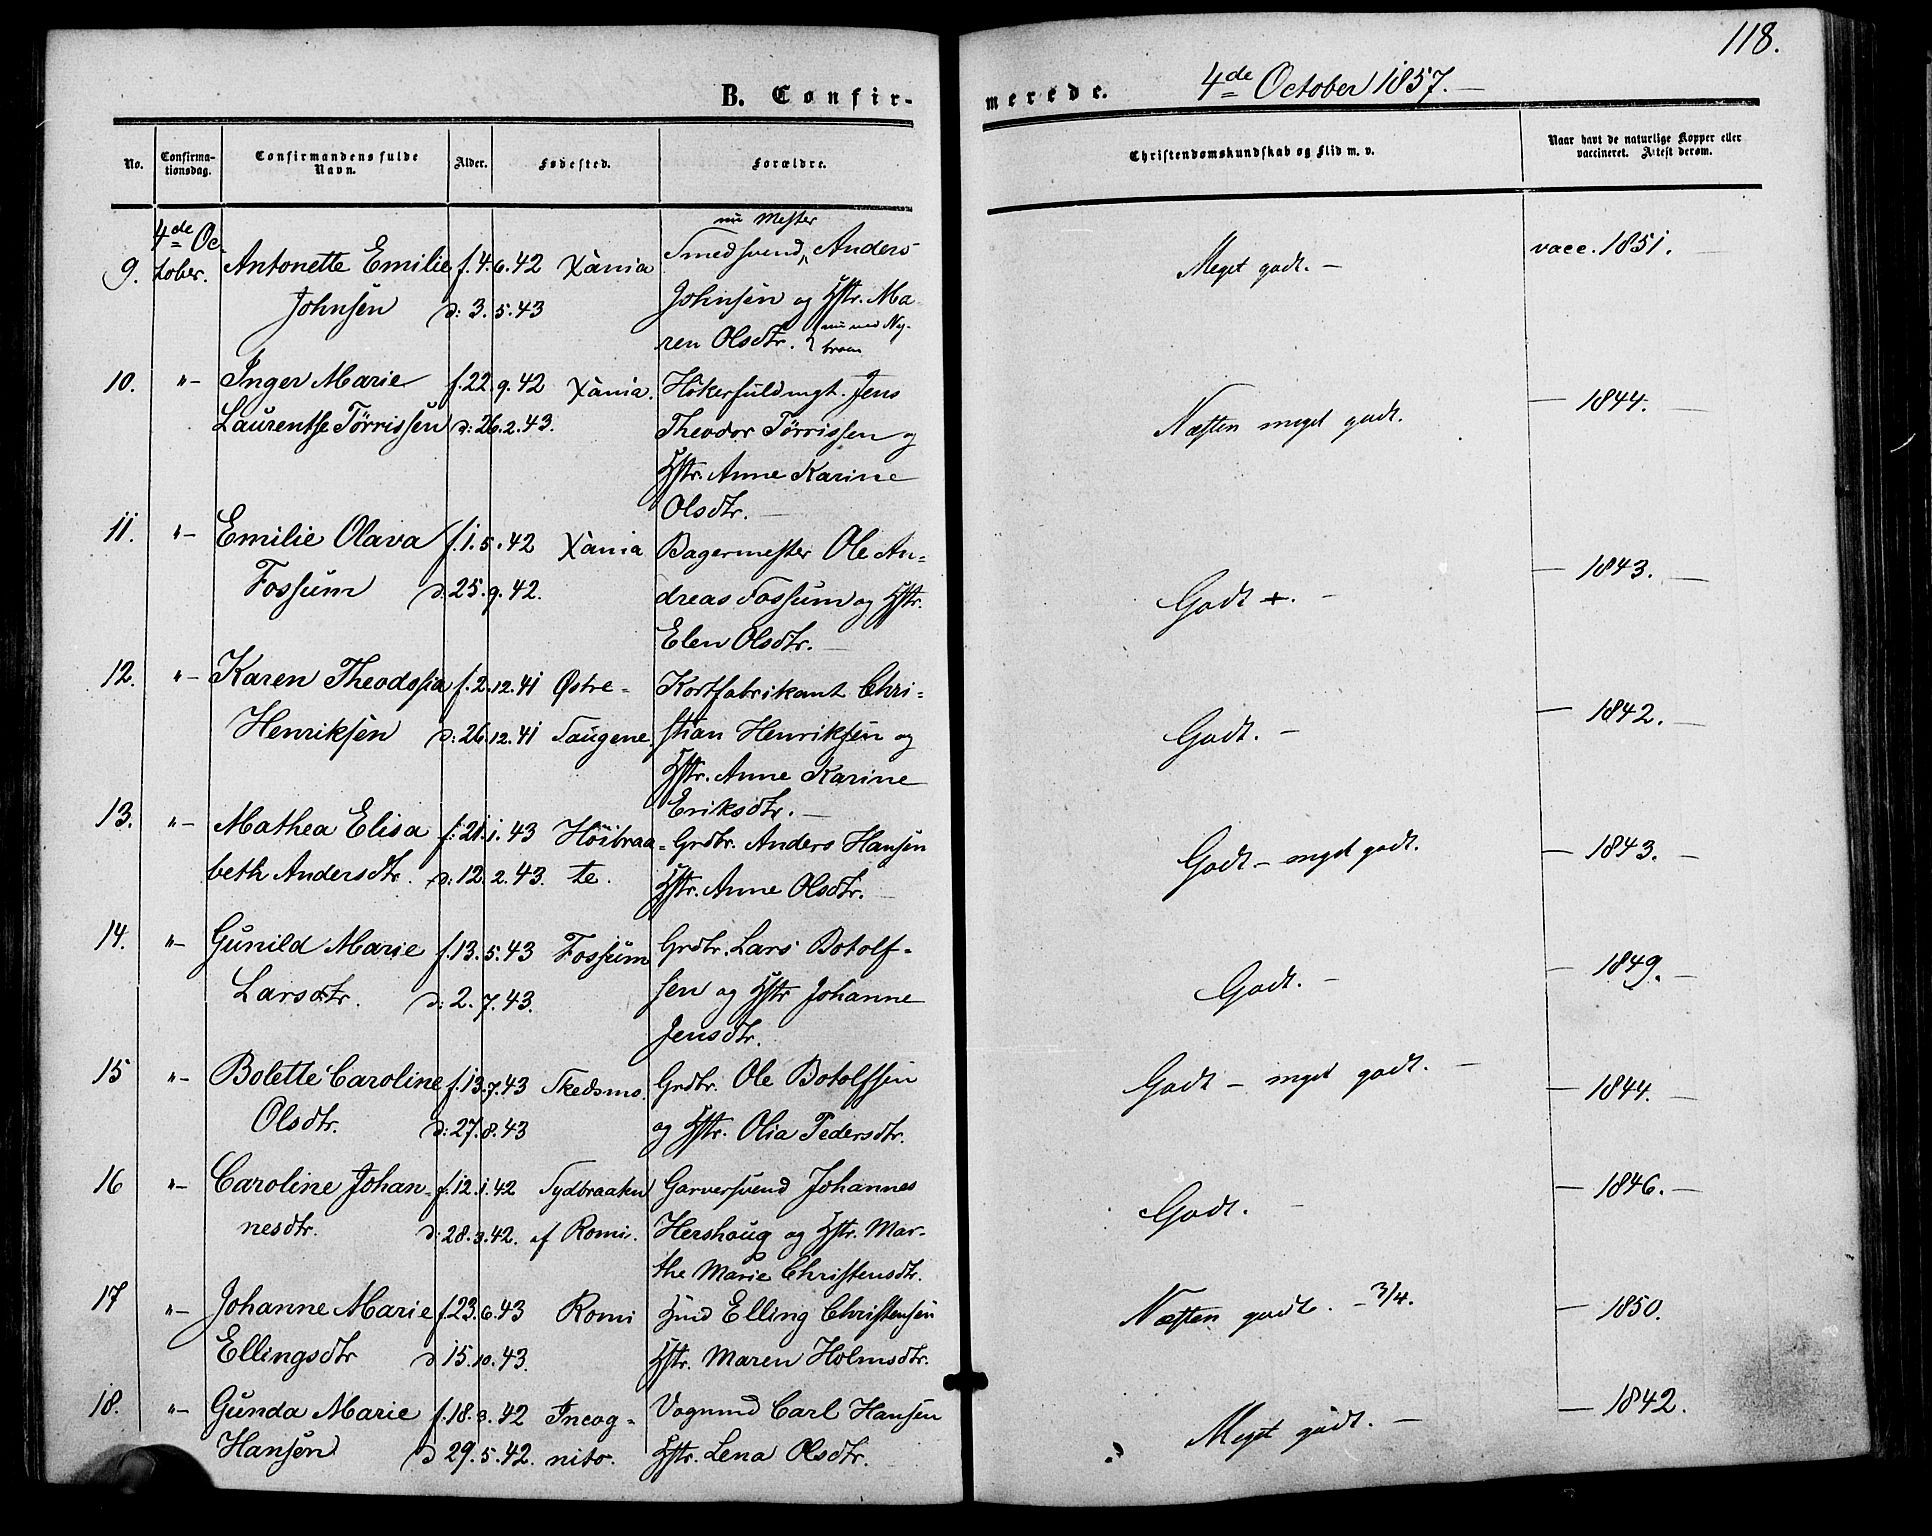 118.
B. Confirmerede. 4de October 1857.
No. Confirmationsdag. Confirmandens fulde Navn. Alder. Fødested. Forældre. Christendomskundskab og Flid m. v. Naar havt de naturlige Kopper eller vaccineret. Attest derom.
nu Mester
9. 4de October. Antonette Emilie f. 4. 6. 42 Xania Smedsvend, Anders Meget godt. – vacc. 1851. –
Johnsen d: 3. 5. 43 Johnsen og Hstr. Ma
ren Olsdtr.
10. "– Inger Marie f. 22. 9. 42 Xania. Høkerfuldmgt. Jens Næsten meget godt. — 1844. —
Laurentse Törrissen d: 26. 2. 43. Theodor Törrissen og
Hstr. Anne Karine
Olsdtr. —
11. "– Emilie Olava f. 1. 5. 42 Xania Bagermester Ole An- Godt +. – — 1843. —
Fossum d. 25. 9. 42. dreas Fossum og Hstr.
Elen Olsdtr. —
12. "– Karen Theodosia f. 2. 12. 41 Østre- Kortfabrikant Chri- Godt. – — 1842. —
Henriksen d: 26. 12. 41 Taugene. stian Henriksen og
Hstr. Anne Karine
Eriksdtr. —
13. "– Mathea Elisa f: 21. 1. 43 Höibraa- Grdbr. Anders Hansen Godt – meget godt. — 1843. –
beth Andersdtr. d: 12. 2. 43. te. Hstr. Anne Olsdtr. —
14. "– Gunild Marie f. 13. 5. 43 Fossum Grdbr. Lars Botolf- Godt. – — 1849. –
Larsdtr. d: 2. 7. 43. sen og Hstr Johanne
Jensdtr.
15 "– Bolette Caroline f. 13. 7. 43 Skedsmo. Grdbr. Ole Botolfsen Godt – meget godt. – — 1844. —
Olsdtr. d: 27. 8. 43 og Hstr. Olia Pedersdtr.
16 "– Caroline Johan- f. 12. 1. 42 Sydbraaten Garversvend Johannes Godt. – — 1846. —
nesdtr. d: 28. 3. 42. af Romi. Hershoug og Hstr. Mar-
the Marie Christensdtr.
17 "– Johanne Marie f. 23. 6. 43 Romi Hmd Elling Christensen Næsten godt. – 3/4. — 1850. –
Ellingsdtr d 15. 10. 43. Hstr. Maren Holmsdtr.
18. "– Gunda Marie f. 18. 3. 42 Incog- Vognmd Carl Hansen Meget godt. – — 1842.
Hansen d 29. 5. 42. nito. Hstr. Lena Olsdtr.